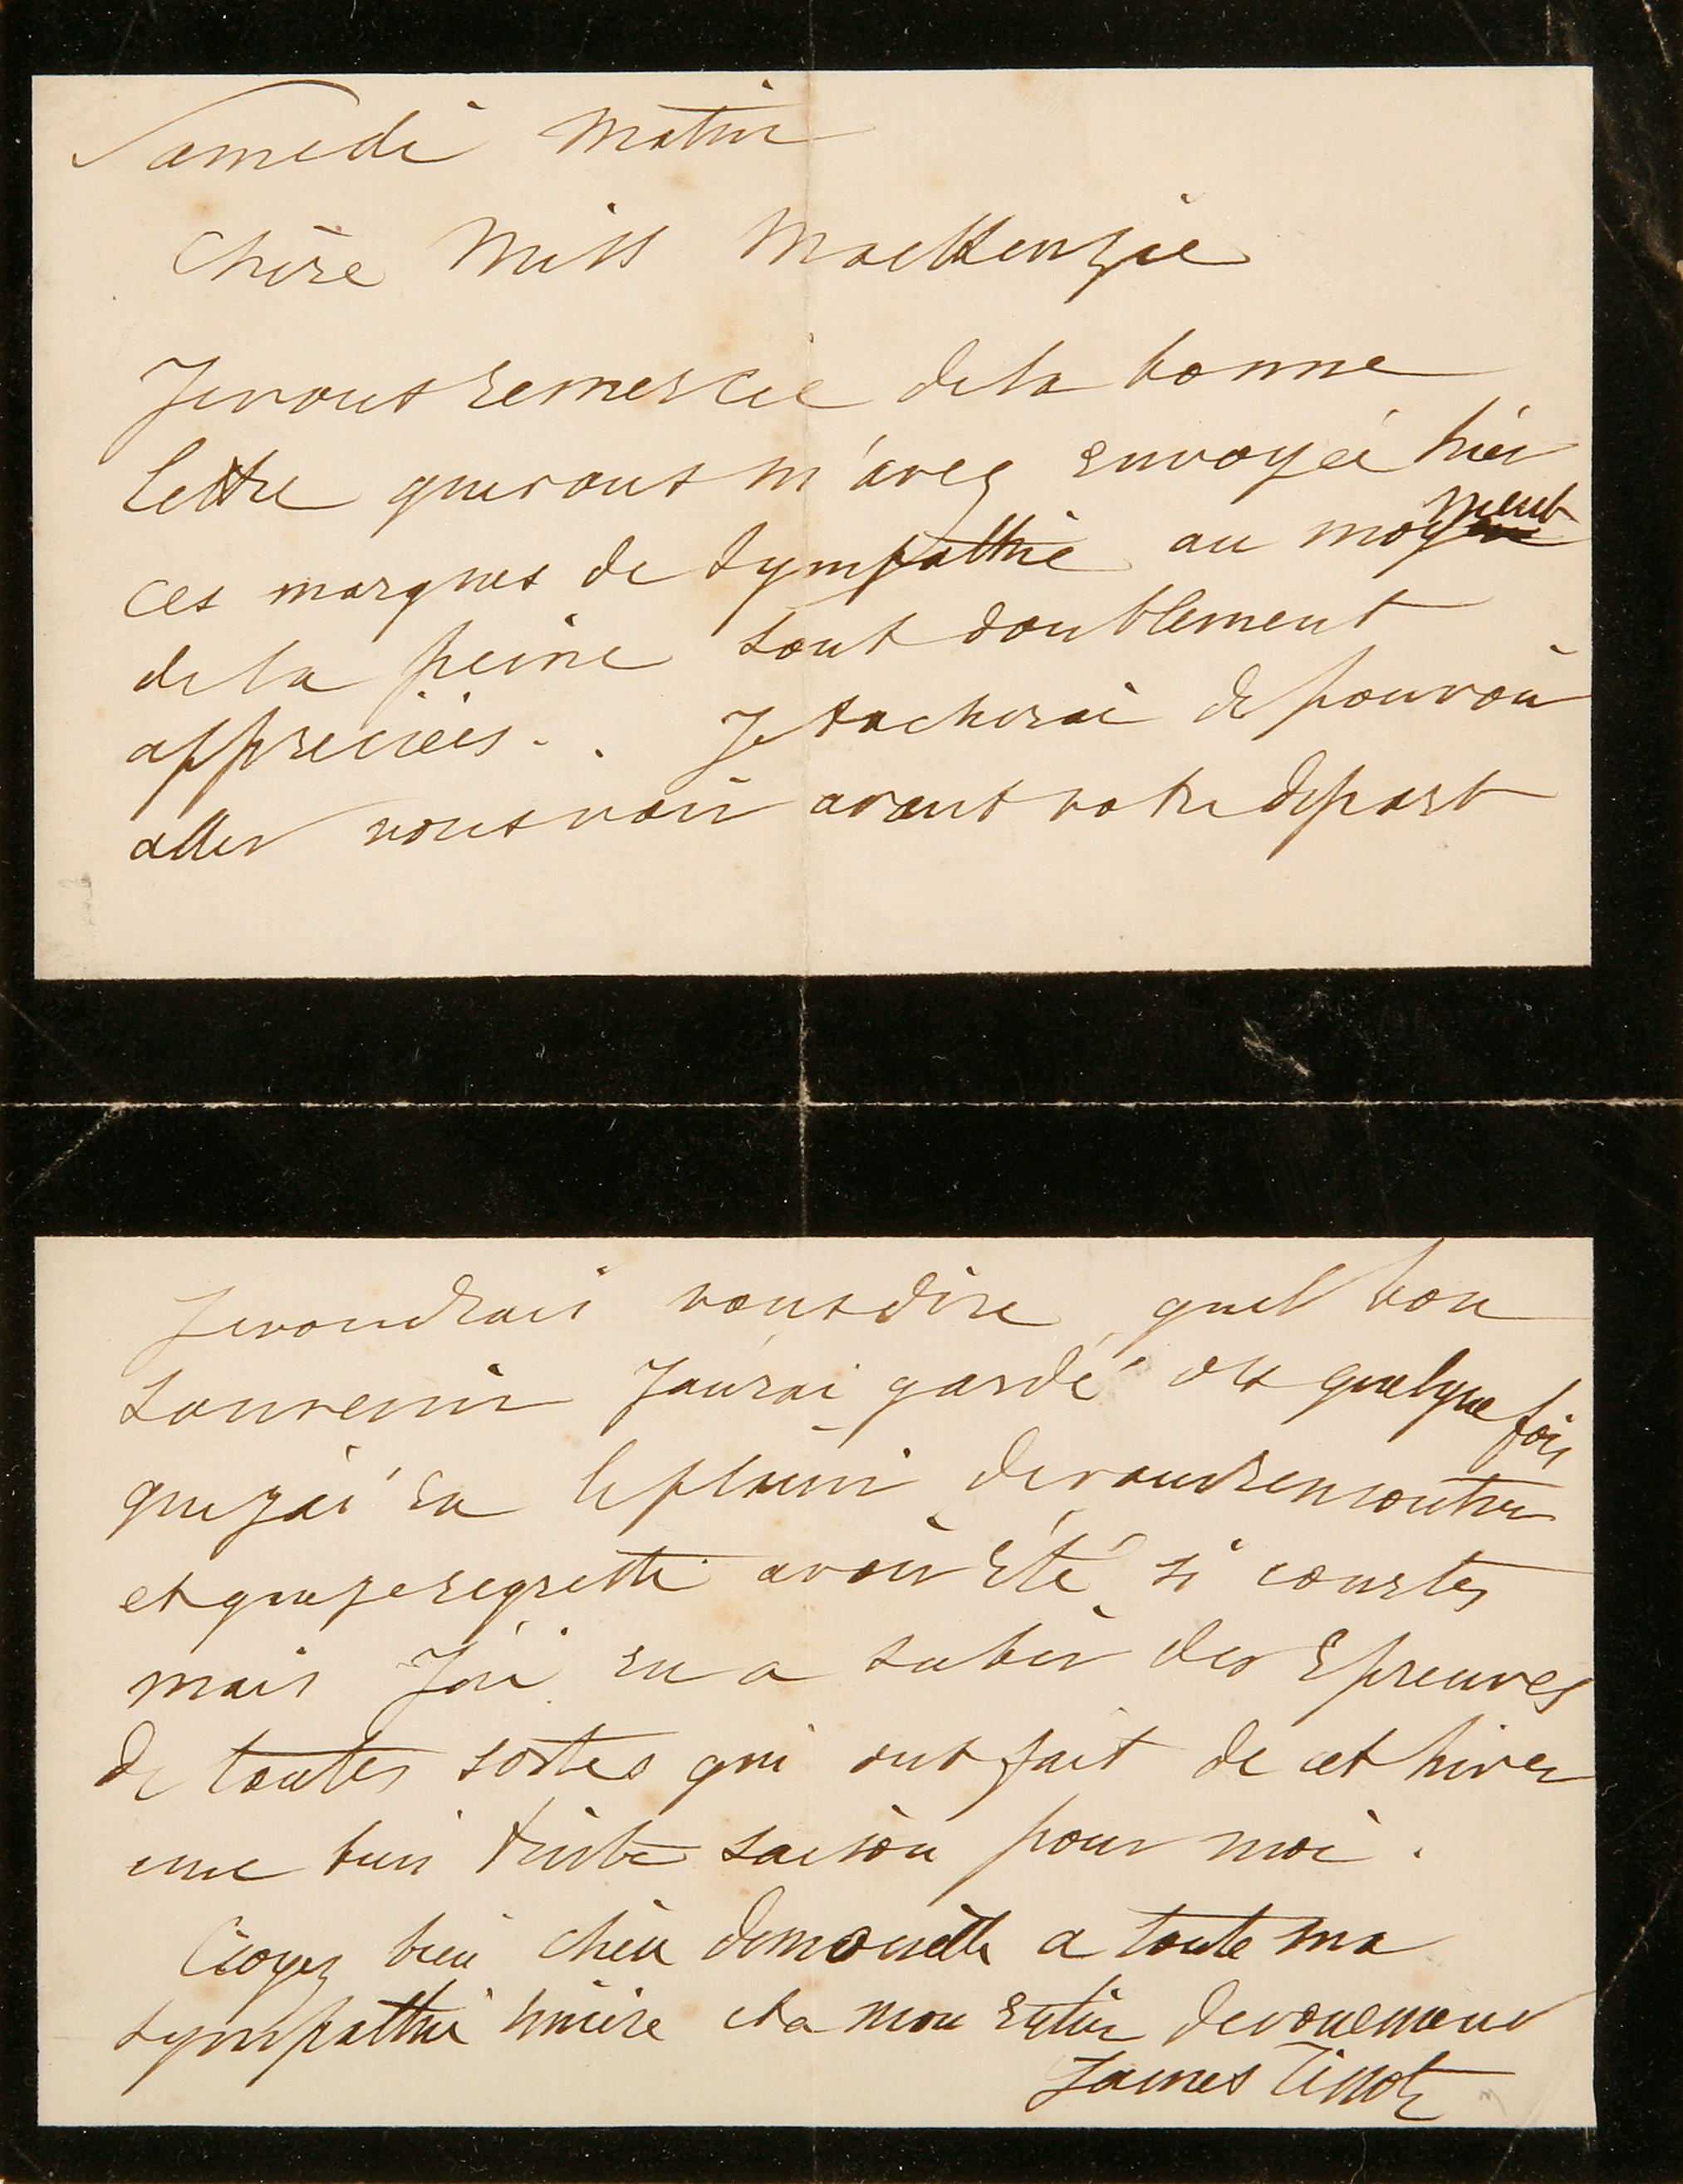 Samedi Matin
Chère Miss MacKenzie
Je vous remercie de la bonne
lettre que vous m'avez envoyée hier
ces marques de sympathie au moment
de la peine sont doublement
appreciées. . Je tacherai de pouvoir
aller vous voir avant votre depart
Je voudrais vous dire quel bon
souvenir J'aurai gardé des quelque fois
que j'ai eu le plaisir de vous rencontrer
et que je regrette avoir été si courtes
mais J'ai eu a subir des Epreuves
de toutes sortes qui ont fait de cet hiver
une bien triste saison pour moi .
Croyez bien chère demoiselle a toute ma
sympathie sincère et a mon Entier devouement
James Tissot